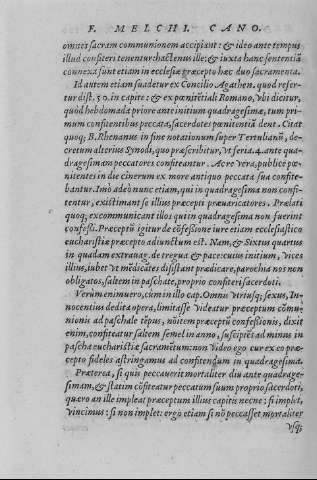 F. MELCHI. CANO.
omnes sacram communionem accipiant: & ideo ante tempus
illud confiteri tenentur: hactenus ille: & iuxta hanc sententiā
connexa sunt etiam in ecclesiæ præcepto hæc duo sacramenta.
Id autem etiam suadetur ex Concilio Agathen. quod refer-
tur dist. 50. in capite: & ex pœnitētiali Romano, vbi dicitur,
quòd hebdomada priore ante initium quadragesimæ, tum pri-
mum confitentibus peccata, sacerdotes pœnitentiā dent. Citat
quoq; B. Rhenanus in fine notationum super Tertulianū, de-
cretum alterius Synodi, quo præscribitur, vt feria. 4. ante qua-
dragesimam peccatores confiteantur. Ac re vera, publicè pœ-
nitentes in die cinerum ex more antiquo peccata sua confite-
bantur. Imò adeò nunc etiam, qui in quadragesima non confi-
tentur, existimant se illius præcepti præuaricatores. Prælati
quoq; excommunicant illos qui in quadragesima non fuerint
confessi. Præceptū igitur de cōfessione iure etiam ecclesiastico
eucharistiæ præcepto adiunctum est. Nam, & Sixtus quartus
in quadam extrauag. de tregua & pace: cuius initium, Vices
illius, iubet vt mēdicātes disistant prædicare, parochianos non
obligatos, saltem in paschate, proprio confiteri sacerdoti.
Verùm enimuero, cùm in illo cap. Omnis vtriusq; sexus, In-
nocentius dedita opera, limitasse videatur præceptum cōmu-
nionis ad paschale tēpus, nō item præceptū confessionis, dixit
enim, confiteatur saltem semel in anno, suscipiēs ad minus in
pascha eucharistiæ sacramētum: non video ego cur ex eo præ-
cepto fideles astringamus ad confitendum in quadragesima.
Præterea, si quis peccauerit mortaliter diu ante quadrage-
simam, & statim cōfiteatur peccatum suum proprio sacerdoti,
quæro an ille impleat præceptum illius capitis necne: si implet,
vincimus: si non implet: ergò etiam si nō peccasset mortaliter
vsq;